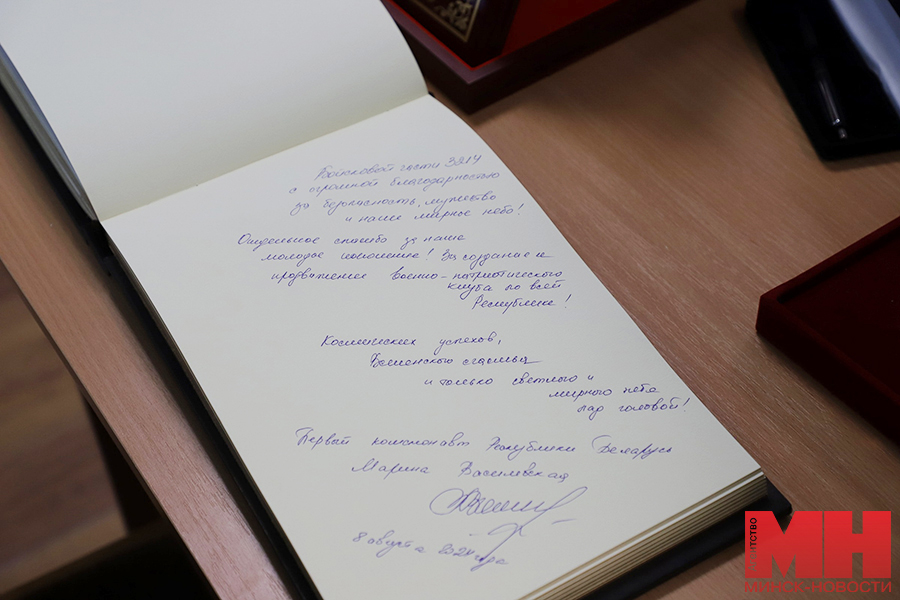 Войсковой части 3214
с огромной благодарностью
за безопасность, мужество
и наше мирное небо!
Отдельное спасибо за наше
молодое поколение! За создание и
продвижение военно-патриотического
клуба по всей
Республике!
Космических успехов,
счастья
и только светлого и
мирного неба
над головой!
Первый космонавт Республики Беларусь
Марина Василевская
8 августа 2024 года
АГЕНТСТВО
МН
МИНСК-НОВОСТИ